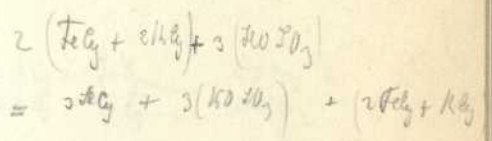 2 (FeCy + 2KCy) + 3 (HO SO3)
= 3 HCy + 3 (KO SO3) + (2 FeCy + KCy